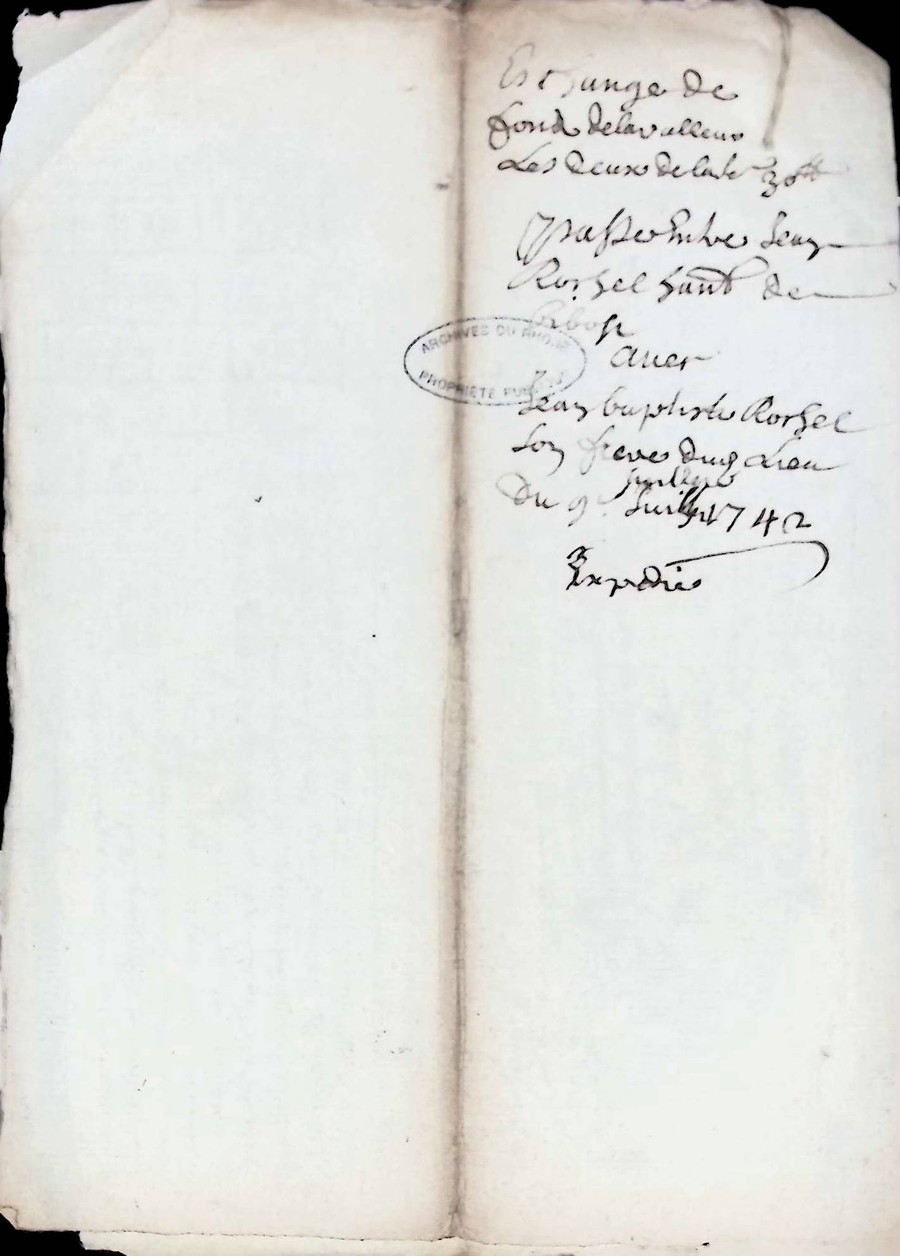 Eschange de
fond delavalleur
Les deux de lad. 30 tt
passe Entre Jean
Rochel habt de
avec
Jean baptiste Rochel
son frere dud Lieu
juillet
Du 9e 1742
Expedié
ARCHIVES DU RHONE
PROPRIETE PUBLIQUE